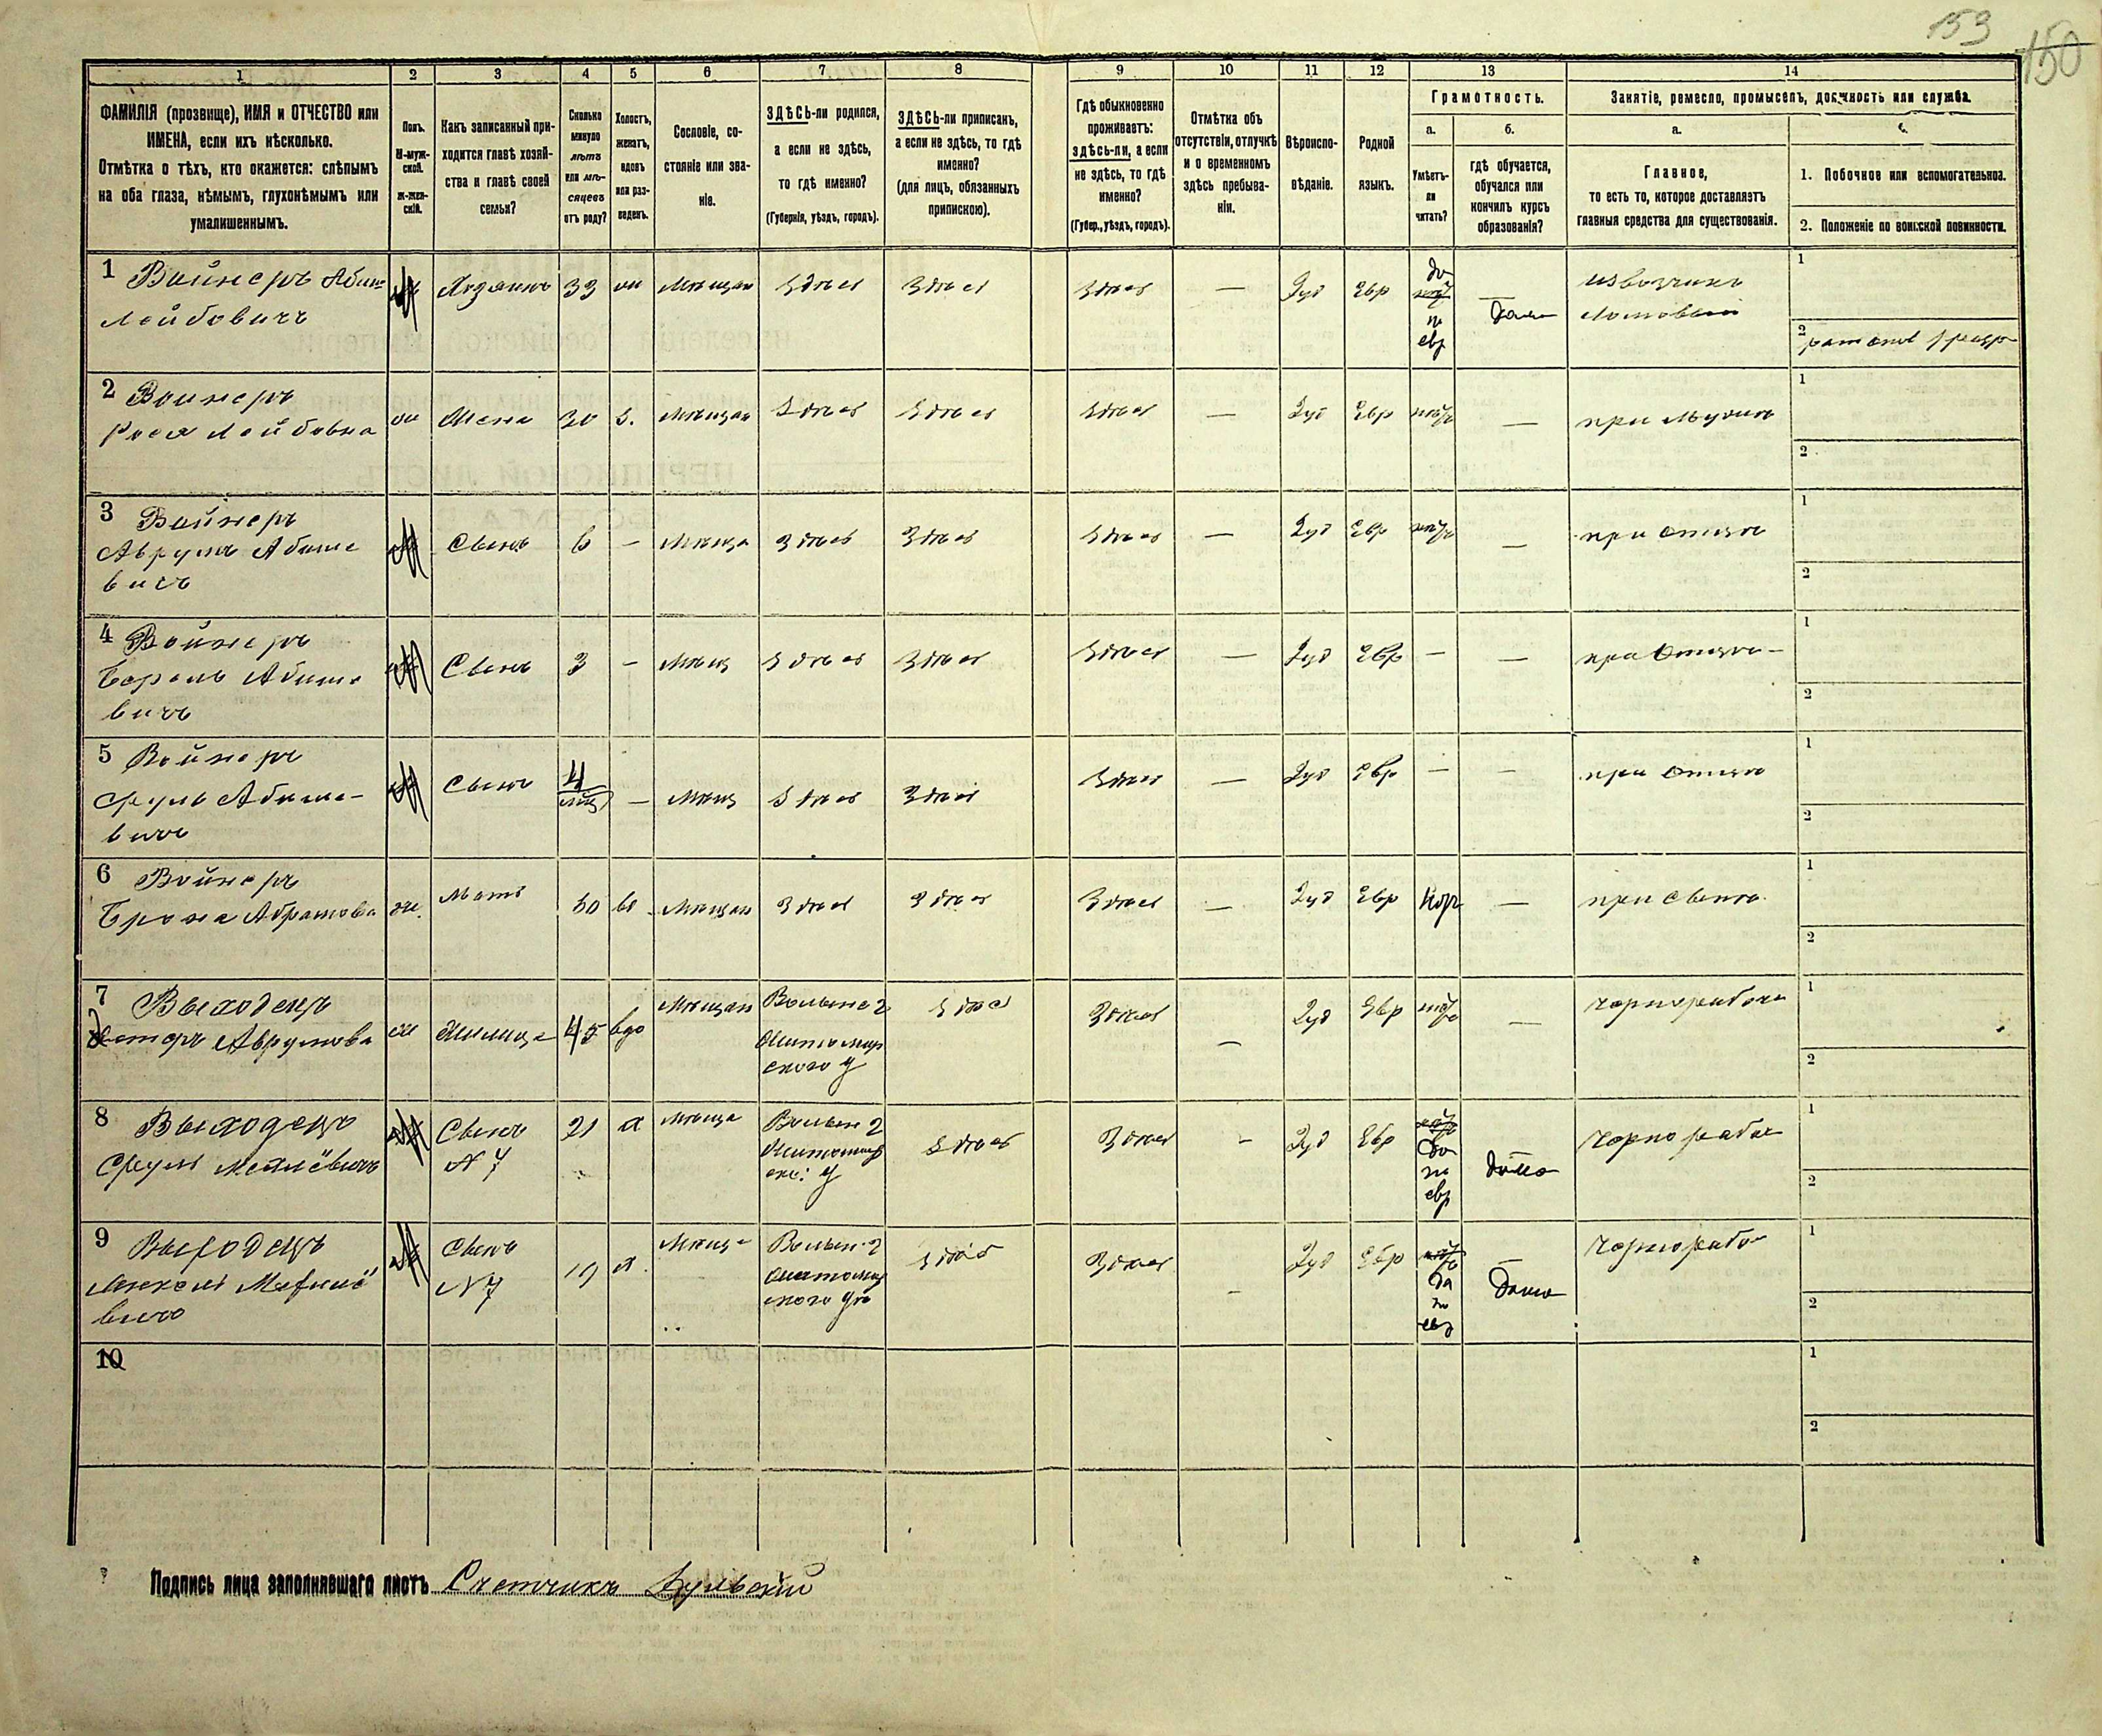 153
150
1 2 3 4 5 6 7 8 9 10 11 12 13 14
ФАМИЛІЯ (прозвище), ИМЯ и ОТЧЕСТВО или
ИМЕНА, если ихъ нѣсколько.
Отмѣтка о тѣхъ, кто окажется: слѣпымъ
на оба глаза, нѣмымъ, глухонѣмымъ или
умалишеннымъ.
Полъ.
М-муж-
ской.
Ж-жен-
скій.
Какъ записанный при-
ходится главѣ хозяй-
ства и главѣ своей
семьи?
Сколько
минуло
лѣтъ
или мѣ-
сяцевъ
отъ роду?
Холостъ,
женатъ,
вдовъ
или раз-
веденъ.
Сословіе, со-
стояніе или зва-
ніе.
ЗДѢСЬ-ли родился,
а если не здѣсь,
то гдѣ именно?
(Губернія, уѣздъ, городъ).
ЗДѢСЬ-ли приписанъ,
а если не здѣсь, то гдѣ
именно?
(для лицъ, обязанныхъ
припискою).
Гдѣ обыкновенно
проживаетъ:
здѣсь-ли, а если
не здѣсь, то гдѣ
именно?
(Губер., уѣздъ, городъ).
Отмѣтка объ
отсутствіи, отлучкѣ
и о временномъ
здѣсь пребыва-
ніи.
Вѣроиспо-
вѣданіе.
Родной
языкъ.
Грамотность.
а.
Умѣетъ-
ли
читать?
б.
гдѣ обучается,
обучался или
кончилъ курсъ
образованія?
Занятіе, ремесло, промыселъ, должность или служба.
а.
Главное,
то есть то, которое доставляетъ
главныя средства для существованія.
1. Побочное или вспомогательное.
2. Положеніе по воинской повинности.
1 Вайнеръ Абиш
Лейбовичъ
М Хозяинъ 33 жи Мѣщан Здѣсь Здѣсь Здѣсь — Іуд Евр
да
по
евр
Дома
извозчикъ
ломовый
1
2
2 Вайнеръ
Рося Лейбовна
жи Жена 30 з. Мѣщан Здѣсь Здѣсь Здѣсь — Іуд Евр нѣтъ — при мужѣ
1
2
3 Вайнеръ
Аврумъ Абише
вичъ
М Сынъ 6 — Мѣща Здѣсь Здѣсь Здѣсь — Іуд Евр нѣтъ — при отцѣ
1
2
4 Вайнеръ
Берель Абише
вичъ
М Сынъ 3 — Мѣщ Здѣсь Здѣсь Здѣсь — Іуд Евр — — при отцѣ —
1
2
5 Вайнеръ
Сруль Абише-
вичъ
М Сынъ 4 мѣц — Мѣщ Здѣсь Здѣсь Здѣсь — Іуд Евр — — при отцѣ
1
2
6 Вайнеръ
Брона Абрамова
ж. Мать 60 вд Мѣщан Здѣсь Здѣсь Здѣсь — Іуд Евр — при сынѣ
1
2
7 Выходецъ
Эстеръ Аврумова
ж Жилица 45 вдо Мѣщан
Волынс г
Житомир
ского у
Здѣсь Здѣсь — Іуд Евр нѣтъ — Чернорабоч
1
2
8 Выходецъ
Сруль
М Сынъ
N 7
21 х Мѣща
Волын г
Житомир
ск: у
Здѣсь Здѣсь - Іуд Евр
да
по
евр
дома
Чернорабоч
1
2
9 Выходецъ
вичъ
М Сынъ
N 7
19 х Мѣща
Волын г
Житомир
ского у
Здѣсь Здѣсь - Іуд Евр
да
по
евр
дома
Чернорабо
1
2
10
1
2
Подпись лица заполнившаго листъ Счетчикъ